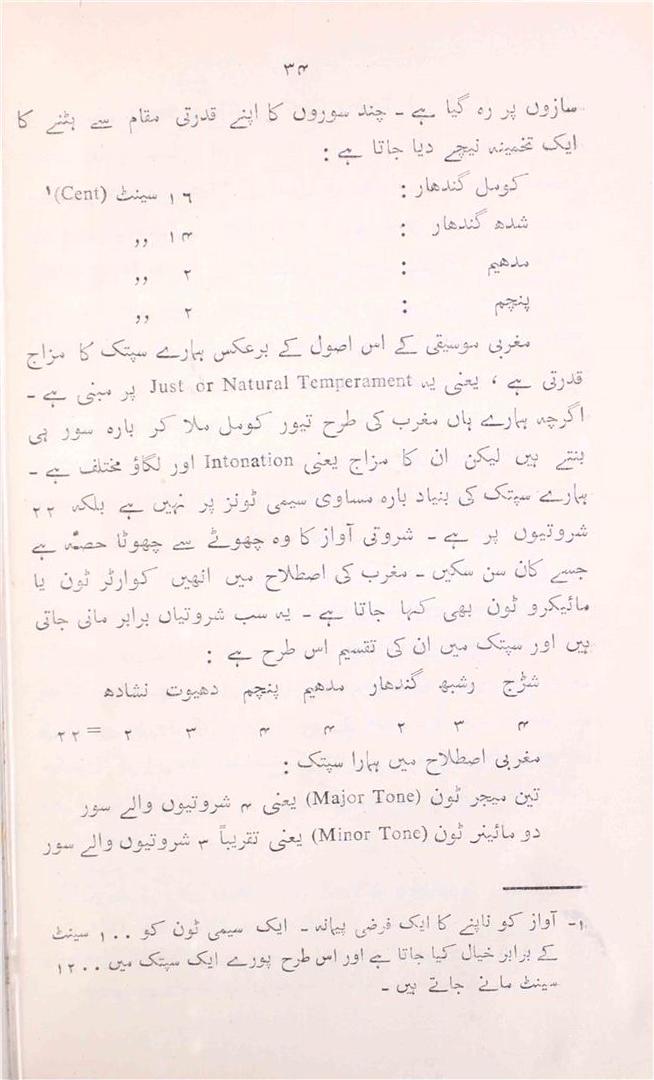 ۳۴
سازوں پر رہ گیا ہے ۔ چند سوروں کا اپنے قدرتی مقام سے ہٹنے کا
ایک تخمینہ نیچے دیا جاتا ہے :
کومل گندھار : ۱۶ سینٹ (Cent)۱
شدھ گندھار : ۱۴ ,,
مدھیم : ۲ ,,
پنچم : ۲ ,,
مغربی موسیقی کے اس اصول کے برعکس ہمارے سپتک کا مزاج
قدرتی ہے ، یعنی یہ Just or Natural Temperament پر مبنی ہے ۔
اگرچہ ہمارے ہاں مغرب کی طرح تیور کومل ملا کر بارہ سور ہی
بنتے ہیں لیکن ان کا مزاج یعنی Intonation اور لگاؤ مختلف ہے ۔
ہمارے سپتک کی بنیاد بارہ مساوی سیمی ٹونز پر نہیں ہے بلکہ ۲۲
شروتیوں پر ہے ۔ شروتی آواز کا وہ چھوٹے سے چھوٹا حصّہ ہے
جسے کان سن سکیں ۔ مغرب کی اصطلاح میں انھیں کوارٹر ٹون یا
مائیکرو ٹون بھی کہا جاتا ہے ۔ یہ سب شروتیاں برابر مانی جاتی
ہیں اور سپتک میں ان کی تقسیم اس طرح ہے :
شڑج رشبھ گندھار مدھیم پنچم دھیوت نشادھ
۴ ۳ ۲ ۴ ۴ ۳ ۲ = ۲۲
مغربی اصطلاح میں ہمارا سپتک :
تین میجر ٹون (Major Tone) یعنی ۴ شروتیوں والے سور
دو مائینر ٹون (Minor Tone) یعنی تقریباً ۳ شروتیوں والے سور
۱۔ آواز کو ناپنے کا ایک فرضی پیمانہ ۔ ایک سیمی ٹون کو ۱۰۰ سینٹ
کے برابر خیال کیا جاتا ہے اور اس طرح پورے ایک سپتک میں ۱۲۰۰
سینٹ مانے جاتے ہیں ۔